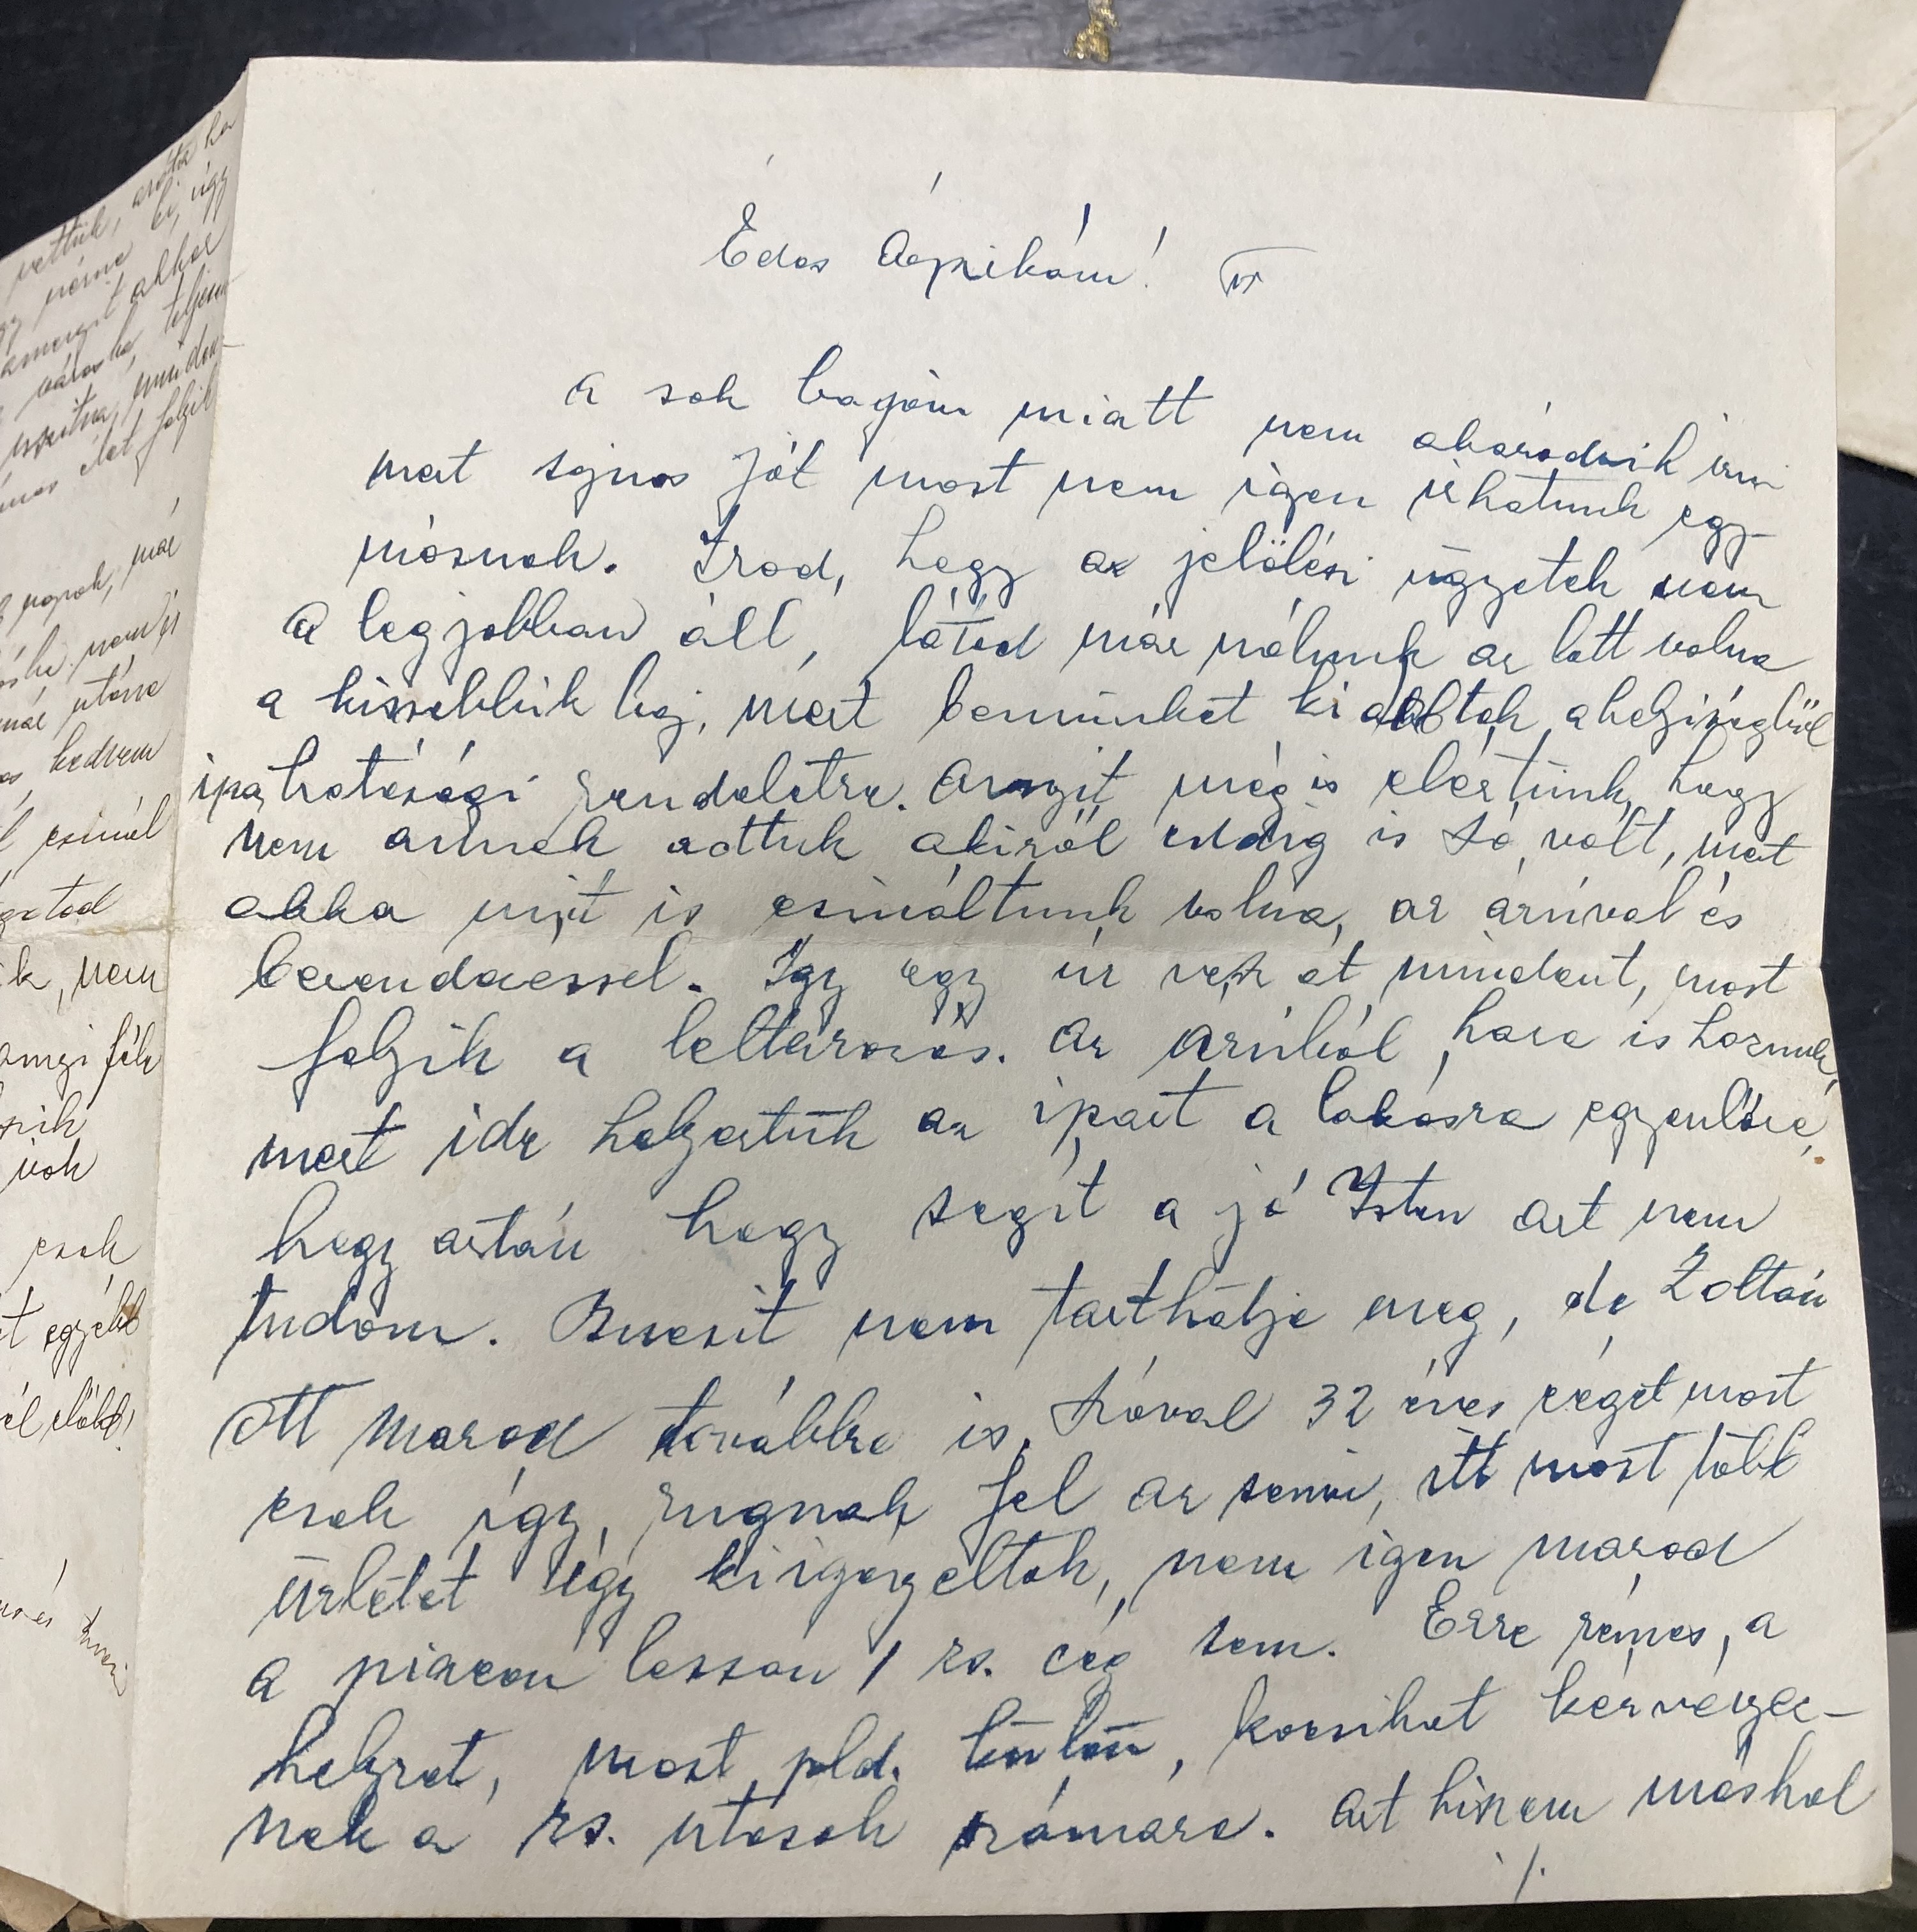 Édes Ágnikám!
a sok bajom miatt nem akaródzik írni
mert sajnos jót most nem igen írhatunk egy-
másnak. Irod, hogy a jelölési ügyetek nem
a legjobban áll, látod már nálunk az lett volna
a kissebbik baj, mert bennünket kiraktak a helyiségből
iparhatósági rendeletre. Annyit mégis elértünk, hogy
nem annak adtuk akiről eddig is szó volt, mert
abba mit is csináltunk volna, az árúval és
berendezéssel. Igy egy úr vesz át mindent, most
folyik a leltározás. Az árúból haza is hozunk,
mert ide helyeztük az ipart a lakásra egyenlőre,
hogy aztán hogy segít a jó Isten azt nem
tudom. Bucsit nem tarthatja meg, de Zoltán
ott marad továbbra is. Szóval 32 éves céget most
csak így, rugnak fel az semmi, itt most több
üzletet így kiigényeltek, nem igen marad
a piacon lassan 1 zs. cég sem. Erre rémes, a
helyzet, most pld. külön kocsikat kérvényez-
nek a zs. utasok számára. Azt hiszem máshol
./.
vettük,
úgy
akkor
városba, teljesen
minden-
élet folyik
napok, már
nem is
már utána
kedvem
csinál
k, nem
csak
t egyébb